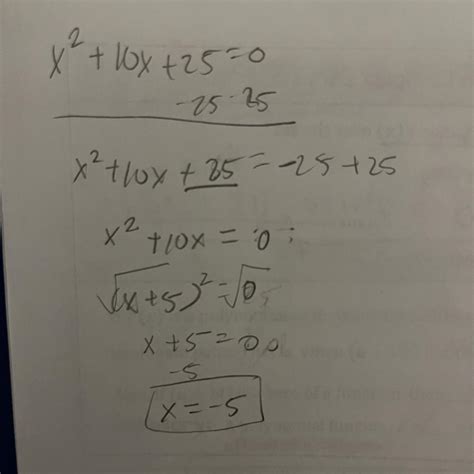 x² + 10x + 25 = 0
-25 -25
x² + 10x + 25 = -25 + 25
x² + 10x = 0
√(x + 5)² = √0
x + 5 = 0
-5
x = -5